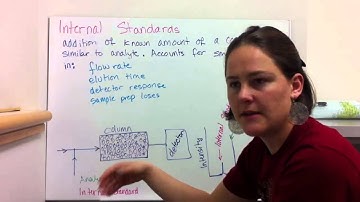 Internal Standards
addition of known amount of a
similar to analyte. Accounts for
in: flow rate
elution time
detector response
sample prep loses
column
detector
Intensity
Internal
Internal Standard